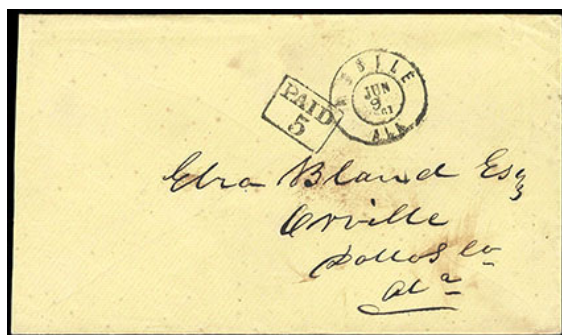 MOBILE
JUN
9
1861
ALA
PAID
5
Ezra Bland Esq
Orville
Dallas Co
Ala